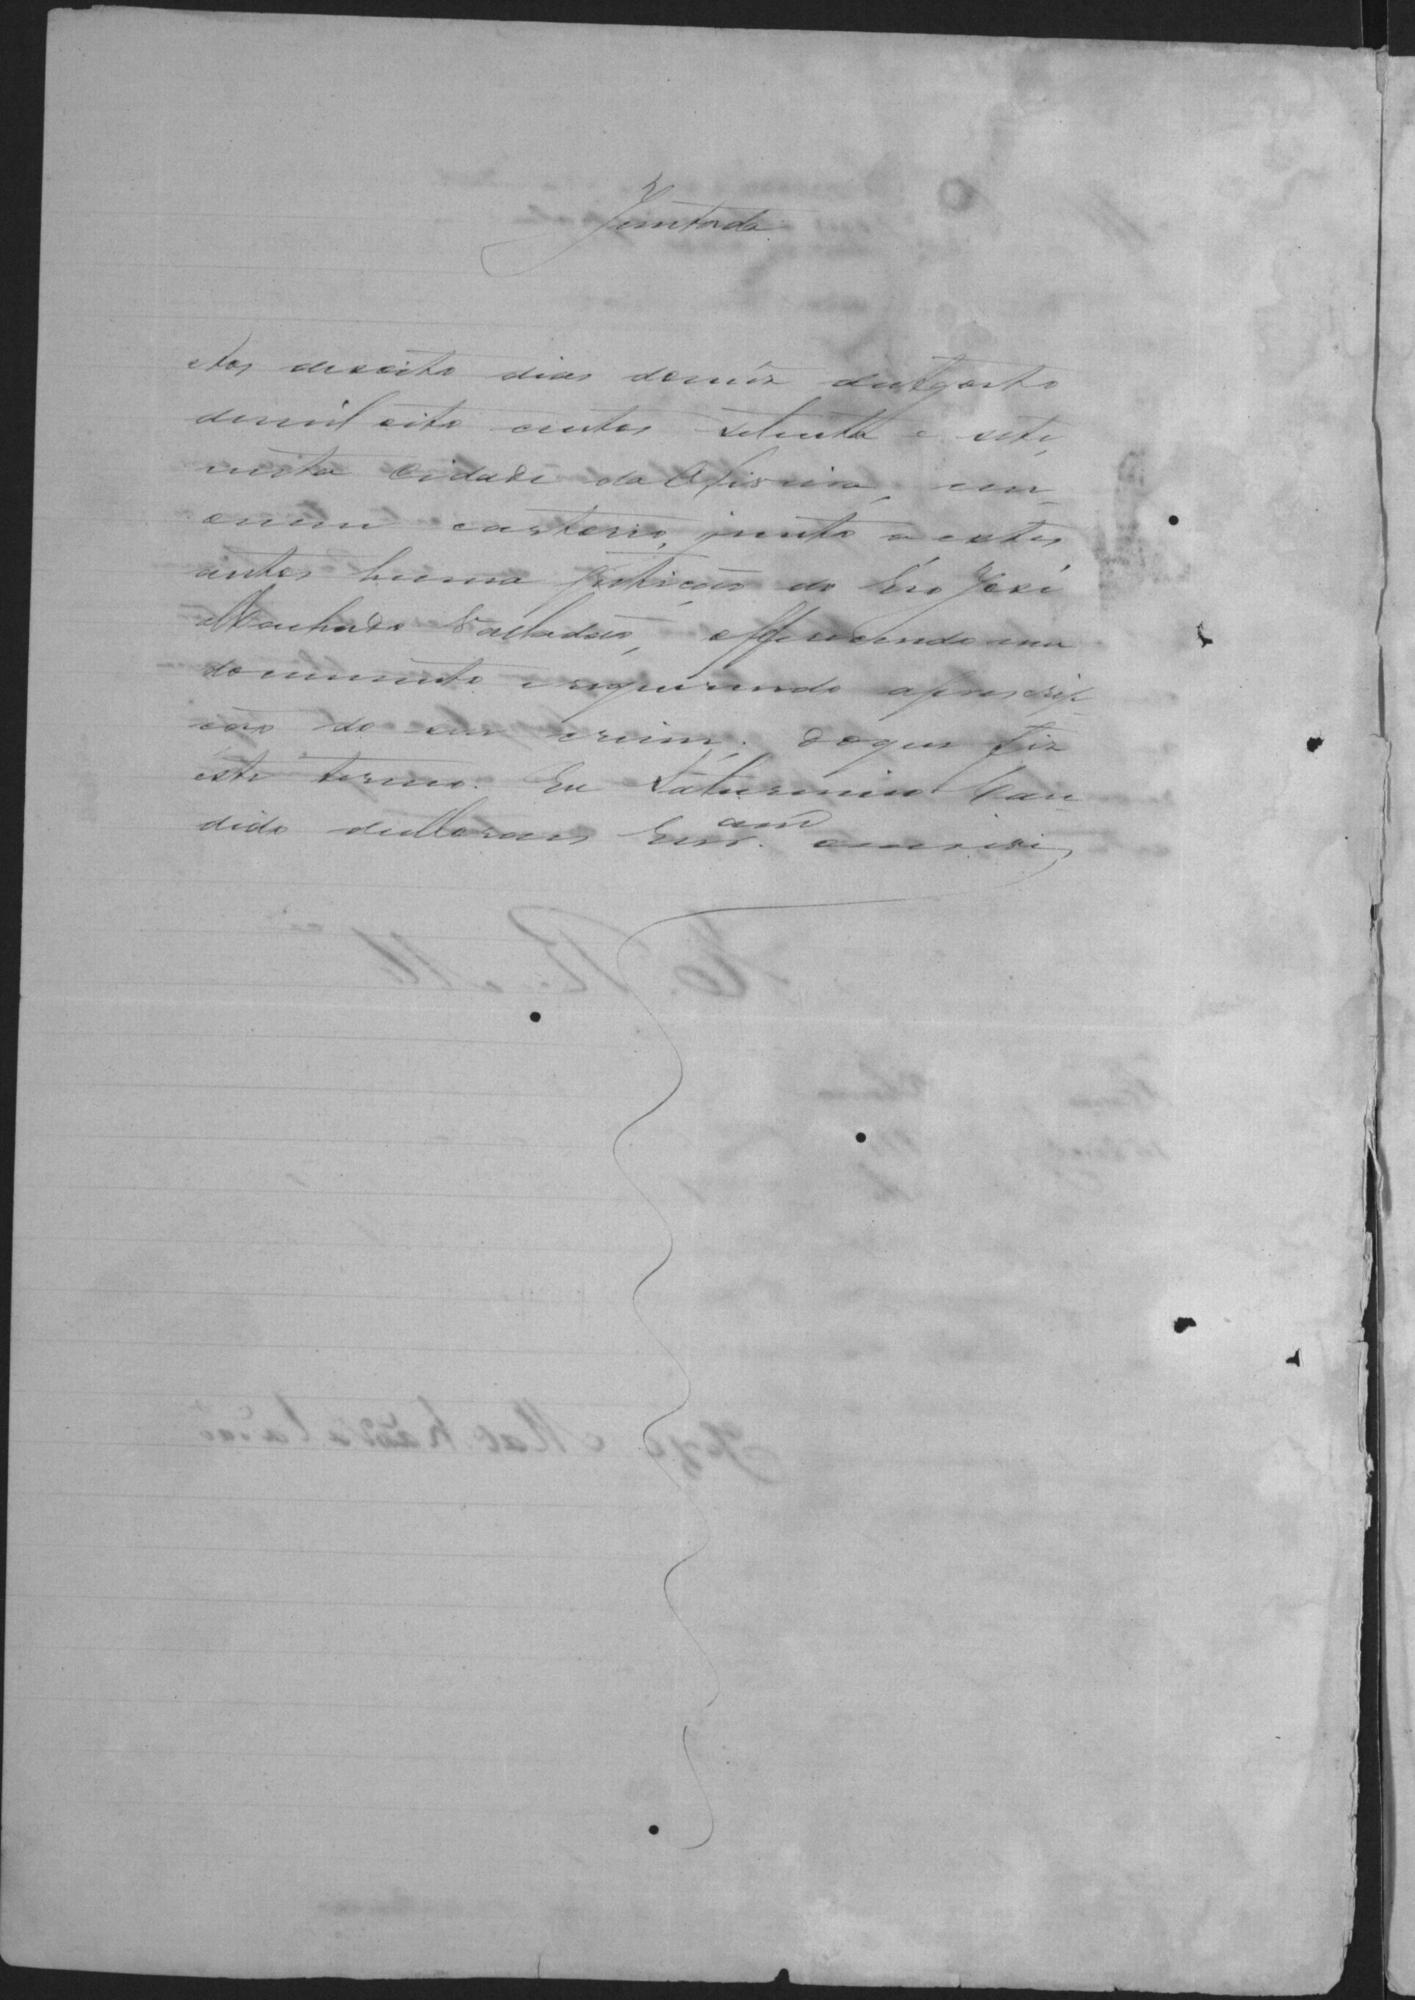 Juntada
Aos desoito dias domês deAgosto
demil oito centos setenta e sete,
nesta Cidade da Oliveira, em
omeu cartorio, junto a estes
autos huma petição do Réo José
Machado Valladão, offerecendo um
documento erequerendo aprescrip-
ção do seu crime; doque fiz
este termo. Eu Saturnino Can-
dido deMoraes Esc.am oescrevi,